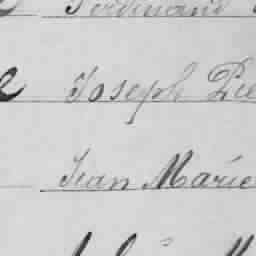 Ferdinand
Joseph Pie
Jean Marie